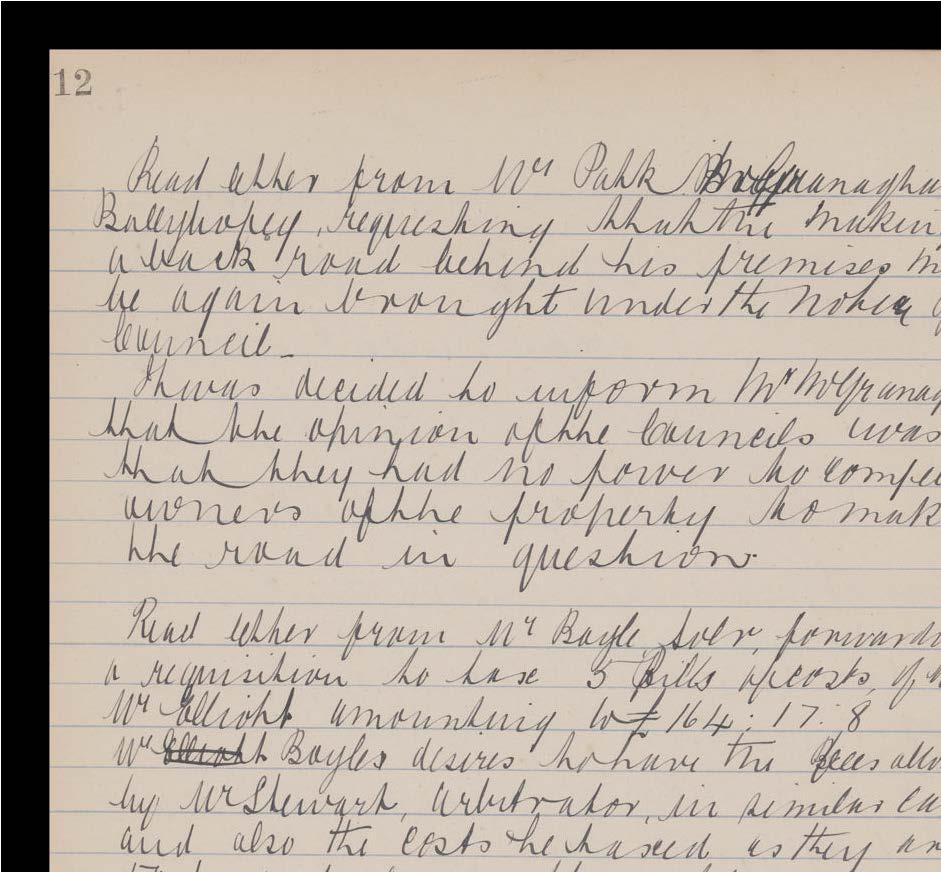 12
Read letter from Mr Patk McGranagha
Ballybofey, requesting that the makin
a back road behind his premises m
be again brought under the notice o
Council_
It was decided to inform Mr McGranag
that the opinion of the Councils was
that they had no power to compe
owners of the property to mak
the road in question.
Read letter from Mr Boyle, Solr, forwardi
a requisition to tax 5 Bills of costs, of
Mr Elliott amounting to £164: 17: 8
Mr Elliott Boyles desires to have the fees allo
by Mr Stewart, arbitrator, in similar ca
and also the costs be taxed as they ar